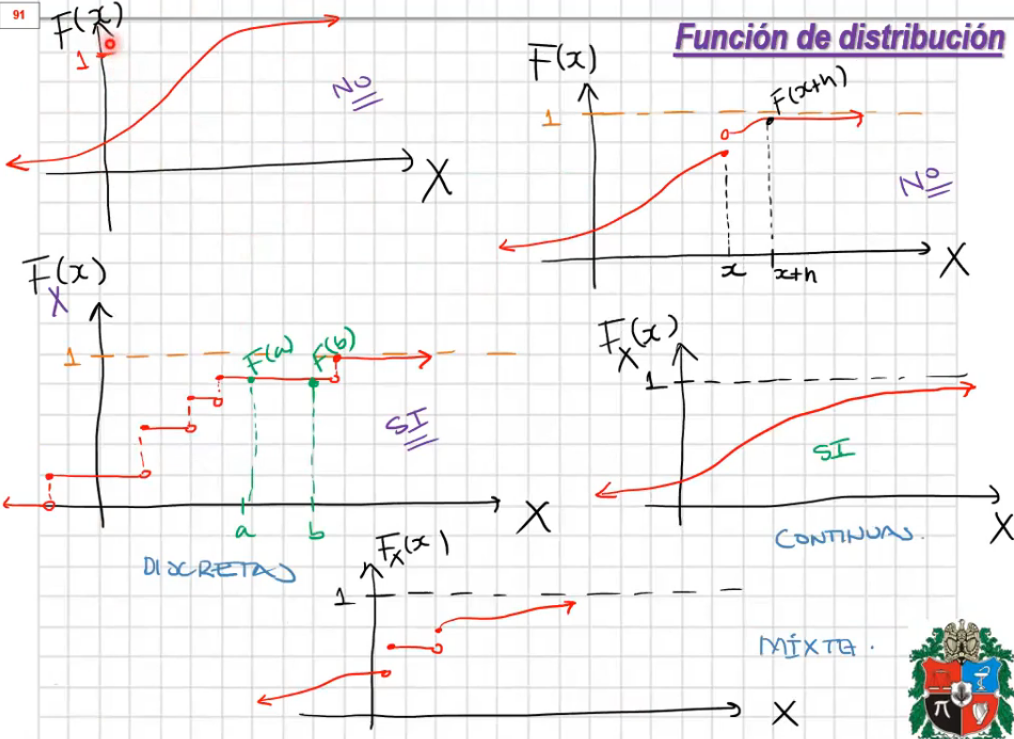 91
Función de distribución
F(x)
1
NO
X
F(x)
1
F(x+h)
NO
x
x+h
X
F_X(x)
1
F(a)
F(b)
SI
a
b
X
DISCRETAS
F_X(x)
1
SI
X
CONTINUAS.
F_X(x)
1
MÍXTA.
X
π